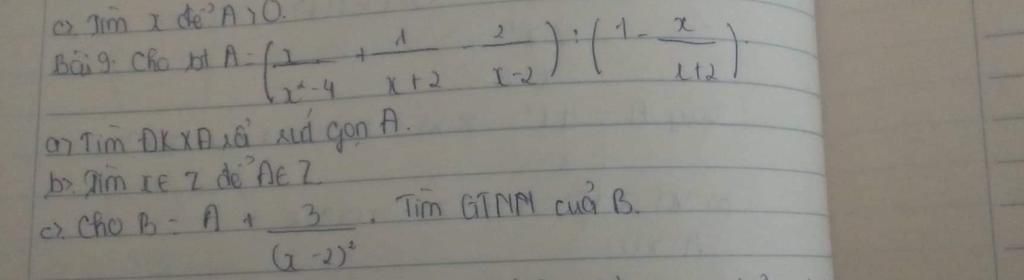 c> Tìm x để A > 0.
Bài 9. Cho bt A = (x/(x²-4) + 1/(x+2) - 2/(x-2)) : (1 - x/(x+2)).
a> Tìm ĐKXĐ và rút gọn A.
b> Tìm x ∈ Z để A ∈ Z
c> Cho B = A + 3/(x-2)². Tìm GTNN của B.